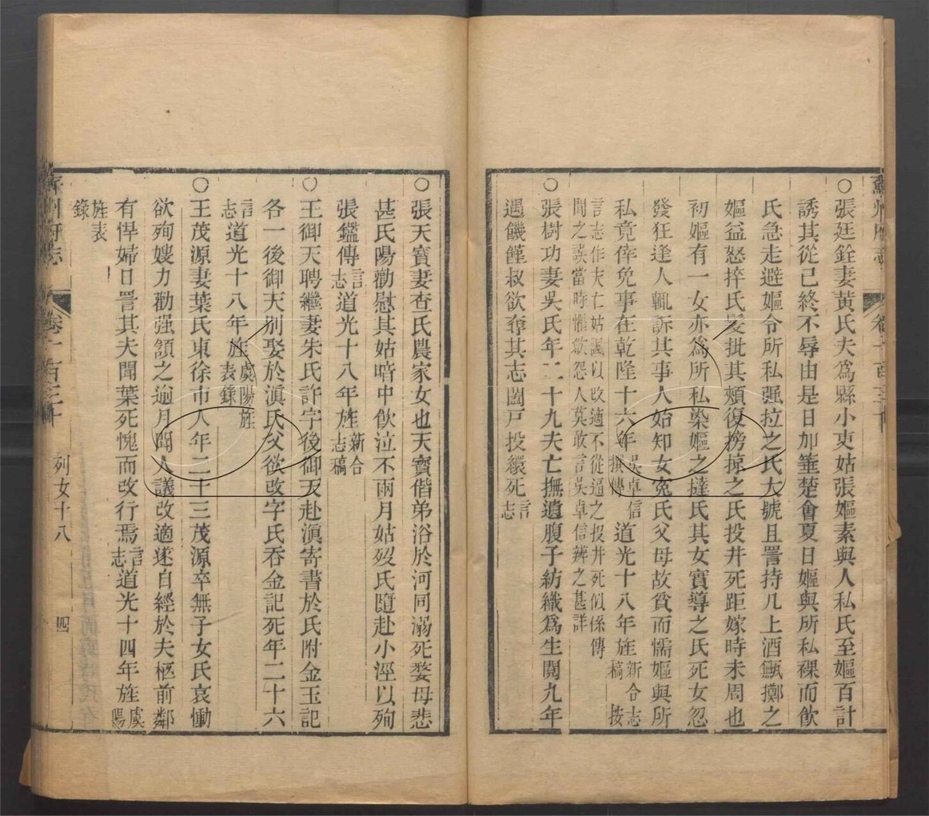 ○張廷銓妻黃氏夫爲縣小吏姑張嫗素與人私氏至嫗百計
誘其從己終不辱由是日加箠楚會夏日嫗與所私裸而飲
氏急走避嫗令所私强拉之氏大號且詈持几上酒甌擲之
嫗益怒捽氏髮批其頰復搒掠之氏投井死距嫁時未周也
初嫗有一女亦爲所私染嫗之撻氏其女實導之氏死女忽
發狂逢人輒訴其事人始知女冤氏父母故貧而懦嫗與所
私竟倖免事在乾隆十六年吳卓信撰傳道光十八年旌新合志稿按
言志作夫亡姑諷以改適不從逼之投井死似係傳
聞之誤當時惟歛怨人莫敢言吳卓信辨之甚詳
○張樹功妻吳氏年二十九夫亡撫遺腹子紡織爲生閱九年
遇饑饉叔欲奪其志闔戸投繯死言志
蘇州府志
卷一百三十
○張天寶妻查氏農家女也天寶偕弟浴於河同溺死婺母悲
甚氏陽勸慰其姑喑中飲泣不兩月姑歿氏隨赴小涇以殉
張鑑傳言志道光十八年旌新合志稿
○王御天聘繼妻朱氏許字後御天赴滇寄書於氏附金玉記
各一後御天别娶於滇氏父欲改字氏吞金記死年二十六
言志道光十八年旌虞陽旌表錄
○王茂源妻葉氏東徐市人年二十三茂源卒無子女氏哀慟
欲殉嫂力勸强頷之逾月閧人議改適遂自經於夫柩前鄰
有悍婦日詈其夫聞葉死愧而改行焉言志道光十四年旌虞陽
旌表錄
蘇州府志
卷一百三十
列女十八
四